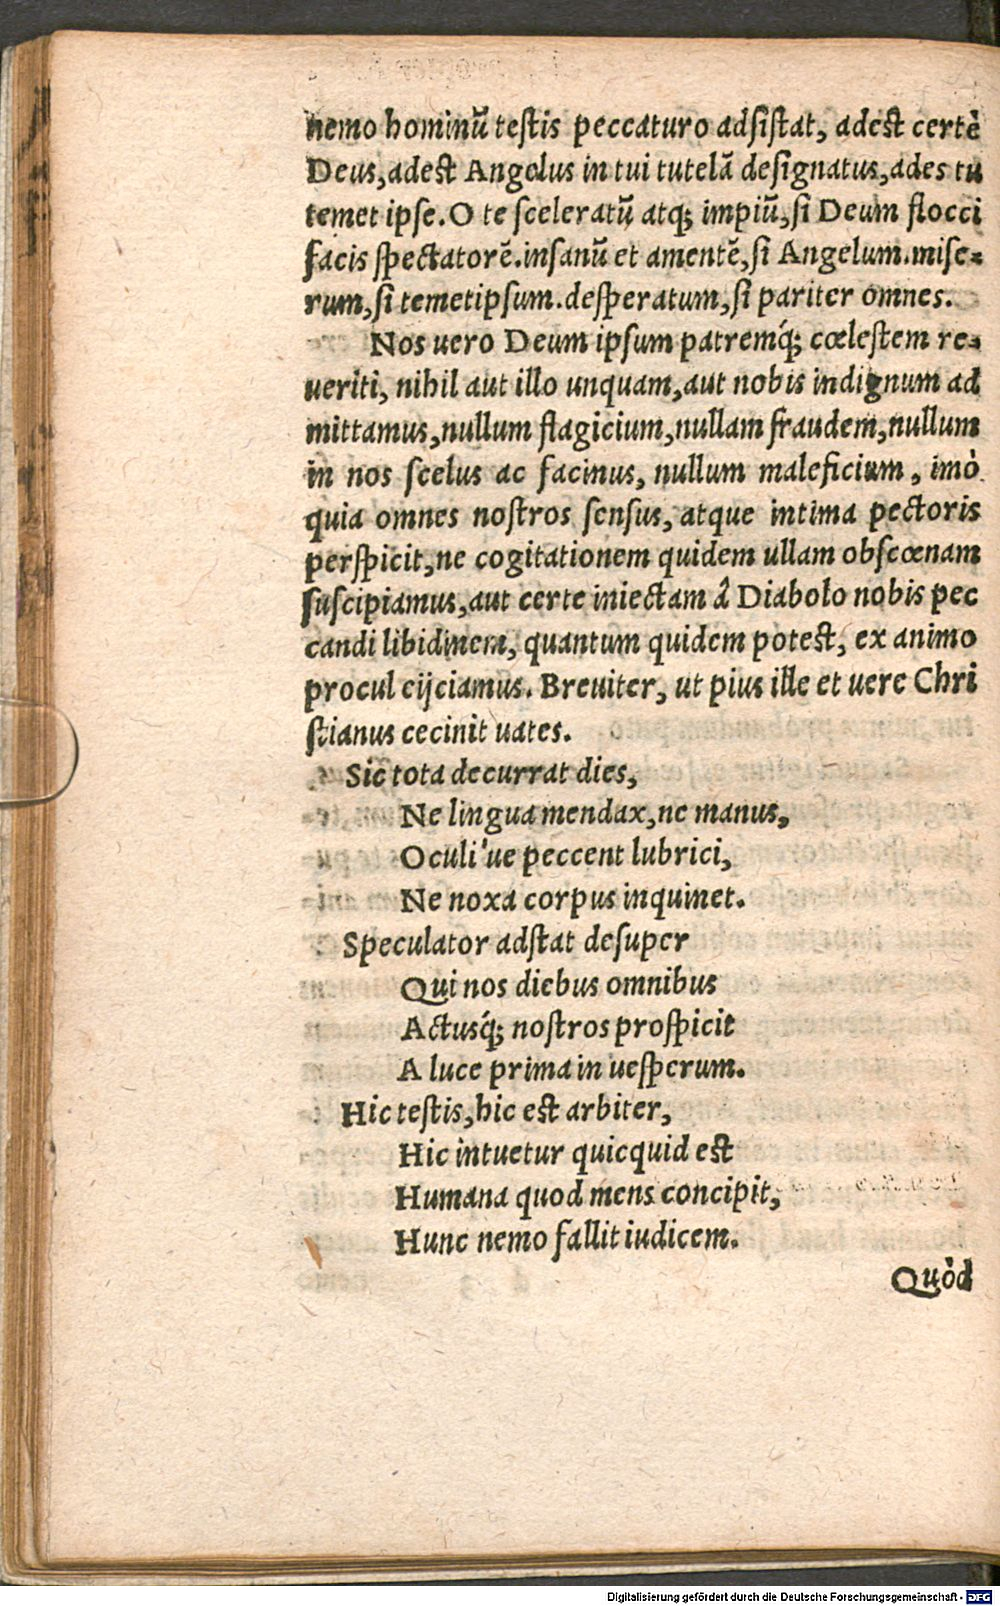 nemo hominũ teſtis peccaturo adſiſtat, adeſt certè
Deus, adeſt Angelus in tui tutelã deſignatus, ades tu
temet ipſe. O te ſceleratũ atq́; impiũ, ſi Deum flocci
facis ſpectatorẽ. inſanũ et amentẽ, ſi Angelum. miſe-
rum, ſi temetipſum. deſperatum, ſi pariter omnes.
Nos uero Deum ipſum patremq́; cœleſtem re-
ueriti, nihil aut illo unquam, aut nobis indignum ad
mittamus, nullum flagicium, nullam fraudem, nullum
in nos ſcelus ac facinus, nullum maleficium, imò
quia omnes noſtros ſenſus, atque intima pectoris
perſpicit, ne cogitationem quidem ullam obſcœnam
ſuſcipiamus, aut certe iniectam â Diabolo nobis pec
candi libidinem, quantum quidem poteſt, ex animo
procul eijciamus. Breuiter, ut pius ille et uere Chri
ſtianus cecinit uates.
Sic tota decurrat dies,
Ne lingua mendax, ne manus,
Oculi'ue peccent lubrici,
Ne noxa corpus inquinet.
Speculator adſtat deſuper
Qui nos diebus omnibus
Actusq́; noſtros proſpicit
A luce prima in ueſperum.
Hic teſtis, hic eſt arbiter,
Hic intuetur quicquid eſt
Humana quod mens concipit,
Hunc nemo fallit iudicem.
Quòd
Digitalisierung gefördert durch die Deutsche Forschungsgemeinschaft - DFG